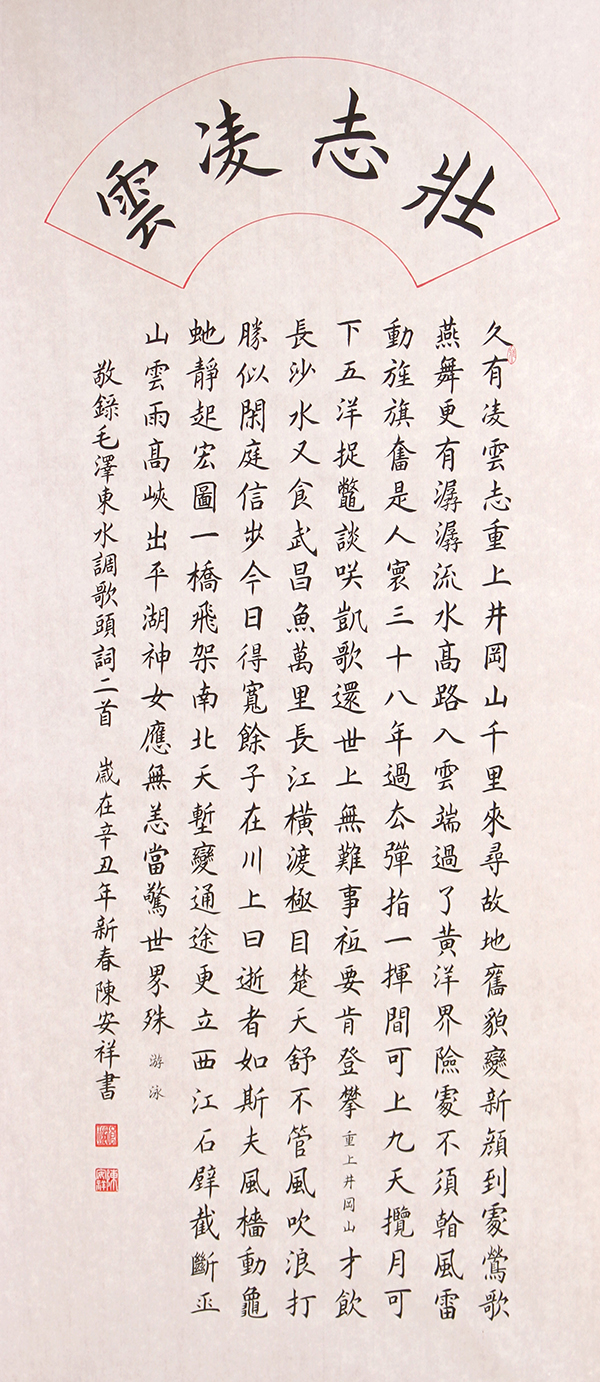 壯志凌雲
久有凌雲志重上井岡山千里來尋故地舊貌變新顔到處鶯歌
燕舞更有潺潺流水髙路入雲端過了黄洋界險處不須看風雷
動旌旗奮是人寰三十八年過去彈指一揮間可上九天攬月可
下五洋捉鼈談咲凱歌還世上無難事祗要肯登攀 重上井岡山 才飲
長沙水又食武昌魚萬里長江橫渡極目楚天舒不管風吹浪打
勝似閑庭信步今日得寬餘子在川上曰逝者如斯夫風檣動龜
虵靜起宏圖一橋飛架南北天塹變通途更立西江石壁截斷巫
山雲雨髙峽出平湖神女應無恙當驚世界殊 游泳
敬錄毛澤東水調歌頭詞二首 嵗在辛丑年新春陳安祥書